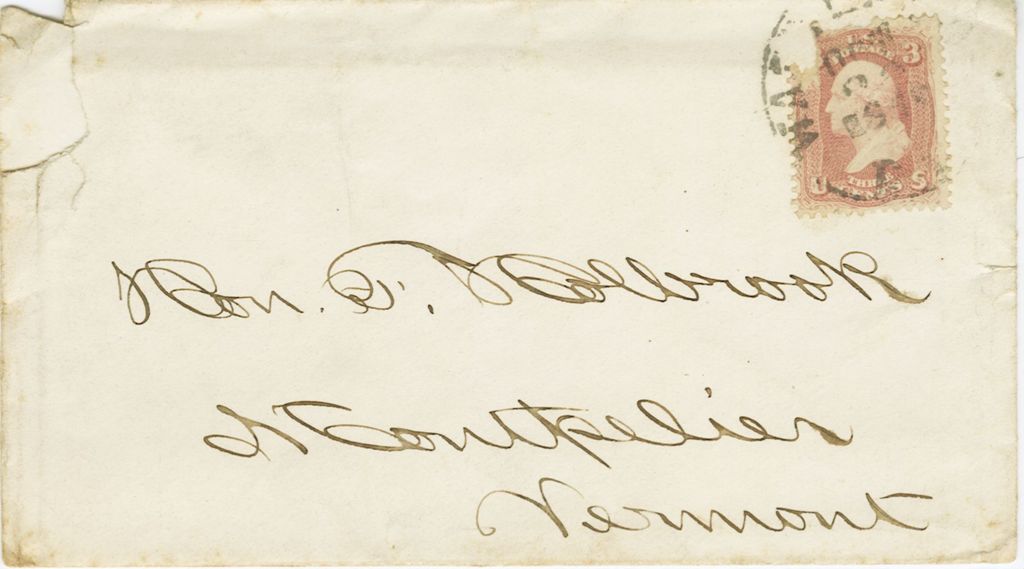 U.S.
POSTAGE
3
THREE
U CENTS S
Hon. F. Holbrook
Montpelier
Vermont